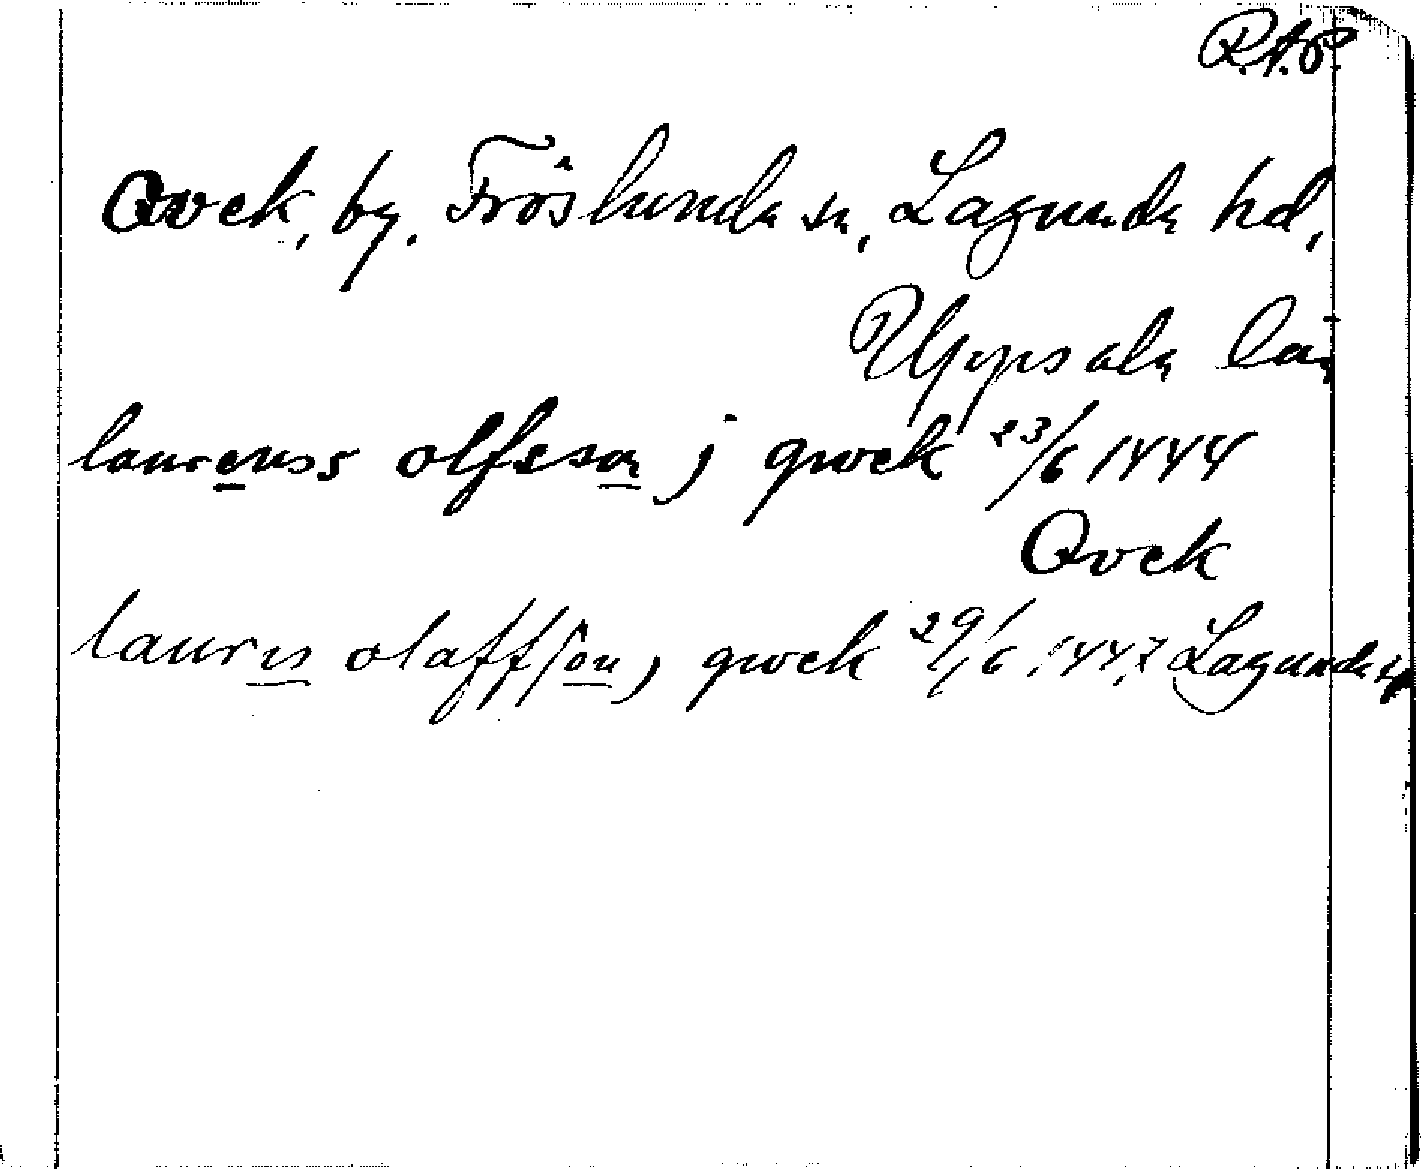 R.A.P.
Qvek, by. Fröslunda sn, Lagunda hd,
Uppsala län
laurenss olfsson j qwek 23/6 1444
Qvek
lauris olaffson j qwek 29/6 1447 Lagunda